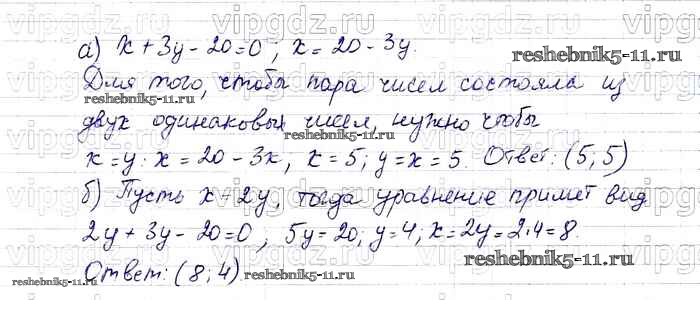 vipgdz.ru vipgdz.ru vipgdz.ru
а) x + 3y - 20 = 0; x = 20 - 3y.
reshebnik5-11.ru
Для того, чтобы пара чисел состояла из
reshebnik5-11.ru
двух одинаковых чисел, нужно чтобы
reshebnik5-11.ru
x = y: x = 20 - 3x, x = 5; y = x = 5. Ответ: (5; 5)
б) Пусть x = 2y, тогда уравнение примет вид
reshebnik5-11.ru
2y + 3y - 20 = 0; 5y = 20; y = 4; x = 2y = 2·4 = 8.
reshebnik5-11.ru
Ответ: (8; 4)
reshebnik5-11.ru
reshebnik5-11.ru